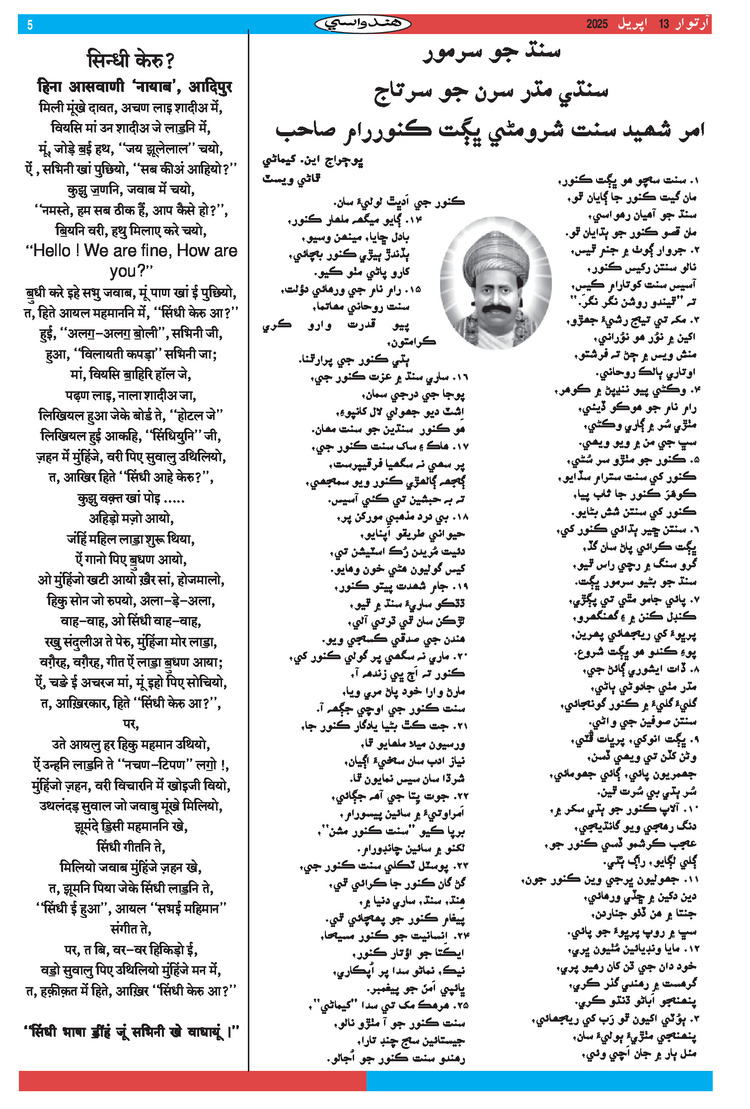 5
هندواسي
آرتوار 13 اپريل 2025
सिन्धी केरु?
हिना आसवाणी ‘नायाब’, आदिपुर
मिली मूंखे दावत, अचण लाइ शादीअ में,
वियसि मां उन शादीअ जे लाॾनि में,
मूं, जोड़े ॿई हथ, ‘‘जय झूलेलाल’’ चयो,
ऐं , सभिनी खां पुछियो, ‘‘सब कीअं आहियो?’’
कुझु ॼणनि, जवाब में चयो,
‘‘नमस्ते, हम सब ठीक हैं, आप कैसे हो?’’,
ॿियनि वरी, हथु मिलाए करे चयो,
‘‘Hello ! We are fine, How are
you?’’
ॿुधी करे इहे सभु जवाब, मूं पाण खां ई पुछियो,
त, हिते आयल महमाननि में, ‘‘सिंधी केरु आ?’’
हुई, ‘‘अलॻ-अलॻ ॿोली’’, सभिनी जी,
हुआ, ‘‘विलायती कपड़ा’’ सभिनी जा;
मां, वियसि ॿाहिरि हॉल जे,
पढ़ण लाइ, नाला शादीअ जा,
लिखियल हुआ जेके बोर्ड ते, ‘‘होटल जे’’
लिखियल हुई आकहि, ‘‘सिंधियुनि’’ जी,
ज़हन में मुंहिंजे, वरी पिए सुवालु उथिलियो,
त, आखिर हिते ‘‘सिंधी आहे केरु?’’,
कुझु वक़्त खां पोइ .....
अहिड़ो मज़ो आयो,
जंहिं महिल लाॾा शुरू थिया,
ऐं गानो पिए ॿुधण आयो,
ओ मुंहिंजो खटी आयो ख़ैर सां, होजमालो,
हिकु सोन जो रुपयो, अला-ड़े-अला,
वाह-वाह, ओ सिंधी वाह-वाह,
रखु संदुलीअ ते पेरु, मुंहिंजा मोर लाॾा,
वग़ैरह, वग़ैरह, गीत ऐं लाॾा ॿुधण आया;
ऐं, चङे ई अचरज मां, मूं इहो पिए सोचियो,
त, आख़िरकार, हिते ‘‘सिंधी केरु आ?’’,
पर,
उते आयलु हर हिकु महमान उथियो,
ऐं उन्हनि लाॾनि ते ‘‘नचण-टिपण’’ लॻो !,
मुंहिंजो ज़हन, वरी विचारनि में खोइजी वियो,
उथलंदड़ सुवाल जो जवाबु मूंखे मिलियो,
झूमंदे ॾिसी महमाननि खे,
सिंधी गीतनि ते,
मिलियो जवाब मुंहिंजे ज़हन खे,
त, झूमनि पिया जेके सिंधी लाॾनि ते,
‘‘सिंधी ई हुआ’’, आयल ‘‘सभई महिमान’’
संगीत ते,
पर, त बि, वर-वर हिकिड़ो ई,
वॾो सुवालु पिए उथिलियो मुंहिंजे मन में,
त, हक़ीक़त में हिते, आख़िर ‘‘सिंधी केरु आ?’’
‘‘सिंधी भाषा ॾींहं जूं सभिनी खे वाधायूं ।’’
سنڌ جو سرمور
سنڌي مڌر سرن جو سرتاج
امر شهيد سنت شرومڻي ڀڳت ڪنوررام صاحب
ڀوڄراج اين. ڪيماڻي
ڦاڻي ويسٽ
۱. سنت سچو هو ڀڳت ڪنور،
مان گيت ڪنور جا ڳايان ٿو،
سنڌ جو آهيان رهواسي،
مان قصو ڪنور جو ٻڌايان ٿو.
۲. جروار ڳوٺ ۾ جنم ٿيس،
نالو سنتن رکيس ڪنور،
آسيس سنت کوتارام ڪيس،
تہ "ٿيندو روشن نگر نگر."
۳. مک تي تيج رشيءَ جهڙو،
اکين ۾ نُور هو نوراني،
منش ويس ۾ ڄڻ تہ فرشتو،
اوتاري ٻالڪ روحاني.
۴. وڪڻي پيو ننڍپڻ ۾ ڪوهر،
رام نام جو هوڪو ڏيئي،
مٺڙي سُر ۾ ڳاري وڪڻي،
سڀ جي من ۾ ويو ويهي.
۵. ڪنور جو مٺڙو سر سُڻي،
ڪنور کي سنت سترام سڏايو،
ڪوهر ڪنور جا ڳاڻ پيا،
ڪنور کي سنتن شش بڻايو.
۶. سنتن ڇير ٻڌائي ڪنور کي،
ڀڳت ڪرائي پاڻ سان گڏ،
گرو سنگ ۾ رچي راس ٿيو،
سنڌ جو بڻيو سرمور ڀڳت.
۷. پائي جامو مٿي تي پڳڙي،
ڪنڊل ڪنن ۾ ۽ گهنگهرو،
پرڀوءَ کي ريجهائي پهرين،
پوءِ ڪندو هو ڀڳت شروع.
۸. ڏات ايشوري ڳائڻ جي،
مڌر مٺي جادوئي ٻاڻي،
گليءَ گليءَ ۾ ڪنور گونجائي،
سنتن صوفين جي واڻي.
۹. ڀڳت انوکي، پرڀات ڦٽي،
وڻن ڪڏن تي ويهي ڏسن،
جهمريون پائي، ڳائي جهومائي،
سُر ٻڌي بي سُرت ٿين.
۱۰. آلاپ ڪنور جو ٻڌي سکر ۾،
دنگ رهجي ويو گانڌيجي،
عجب ڪرشمو ڏسي ڪنور جو،
ڳلي لڳايو، راڳ ٻڌي.
۱۱. جهوليون ڀرجي وين ڪنور جون،
دين دکين ۾ ڇڏي ورهائي،
جنتا ۾ هن ڏٺو جناردن،
سڀ ۾ روپ پرڀوءَ جو پائي.
۱۲. مايا ونڊيائين مُٺيون ڀري،
خود دان جي ڌن کان رهيو پري،
گرهست ۾ رهندي گذر ڪري،
پنهنجو اَباڻو ڌنڌو ڪري.
۳. ٻُوٽي اکيون ٿو رَب کي ريجهائي،
پنهنجي مٺڙيءَ ٻوليءَ سان،
مئل ٻار ۾ جان اَچي وئي،
ڪنور جي اَڏيٿ لوليءَ سان.
۱۴. ڳايو ميگهہ ملهار ڪنور،
بادل ڇايا، مينهن وسيو،
ٻڏندڙ ٻيڙي ڪنور بچائي،
کارو پاڻي مٺو ڪيو.
۱۵. رام نام جي ورهائي دؤلت،
سنت روحاني مهاتما،
پيو قدرت وارو ڪري ڪرامتون،
ٻڌي ڪنور جي پرارٿنا.
۱۶. ساري سنڌ ۾ عزت ڪنور جي،
پوجا جي درجي سمان،
اِشٽ ديو جهولي لال کانپوءِ،
هو ڪنور سنڌين جو سنت مهان.
۱۷. هاڪ ۽ ساک سنت ڪنور جي،
پر سهي نہ سگهيا فرقيپرست،
ڳجهہ ڳالهڙي ڪنور ويو سمجهي،
تہ بہ حبشين تي ڪئي آسيس.
۱۸. بي درد مذهبي مورکن پر،
حيواني طريقو اَپنايو،
دئيت مُريدن رُڪ اسٽيشن تي،
ڪيس گوليون هڻي خون وهايو.
۱۹. جام شهدت پيتو ڪنور،
ڌڌڪو ساريءَ سنڌ ۾ ٿيو،
لڙڪن سان ڀي ڌرتي آلي،
هندن جي صدقي ڪسجي ويو.
۲۰. ماري نہ سگهي پر گولي ڪنور کي،
ڪنور تہ اَڄ ڀي زندهہ آ،
مارڻ وارا خود پاڻ مري ويا،
سنت ڪنور جي اوچي جڳهہ آ.
۲۱. جت ڪٿ بڻيا يادگار ڪنور جا،
ورسيون ميلا ملهايو ٿا،
نياز ادب سان سخيءَ اڳيان،
شرڌا سان سيس نمايون ٿا.
۲۲. جوت ڀتا جي آهہ جڳائي،
اَمراوتيءَ ۾ سائين پيسورام،
برپا ڪيو "سنت ڪنور مشن"،
لکنو ۾ سائين چانڊورام.
۲۳. پوسٽل ٽڪلي سنت ڪنور جي،
ڳڻ ڳان ڪنور جا ڪرائي ٿي،
هِند، سنڌ، ساري دنيا ۾،
پيغام ڪنور جو پهچائي ٿي.
۲۴. انسانيت جو ڪنور مسيحا،
ايڪتا جو اوُتار ڪنور،
نيڪ، نماڻو سدا پر اُپڪاري،
ڀائپي اَمن جو پيغمبر.
۲۵. هرهڪ مک تي سدا "ڪيماڻي"،
سنت ڪنور جو آ مٺڙو نالو،
جيستائين سج چنڊ تارا،
رهندو سنت ڪنور جو اُجالو.